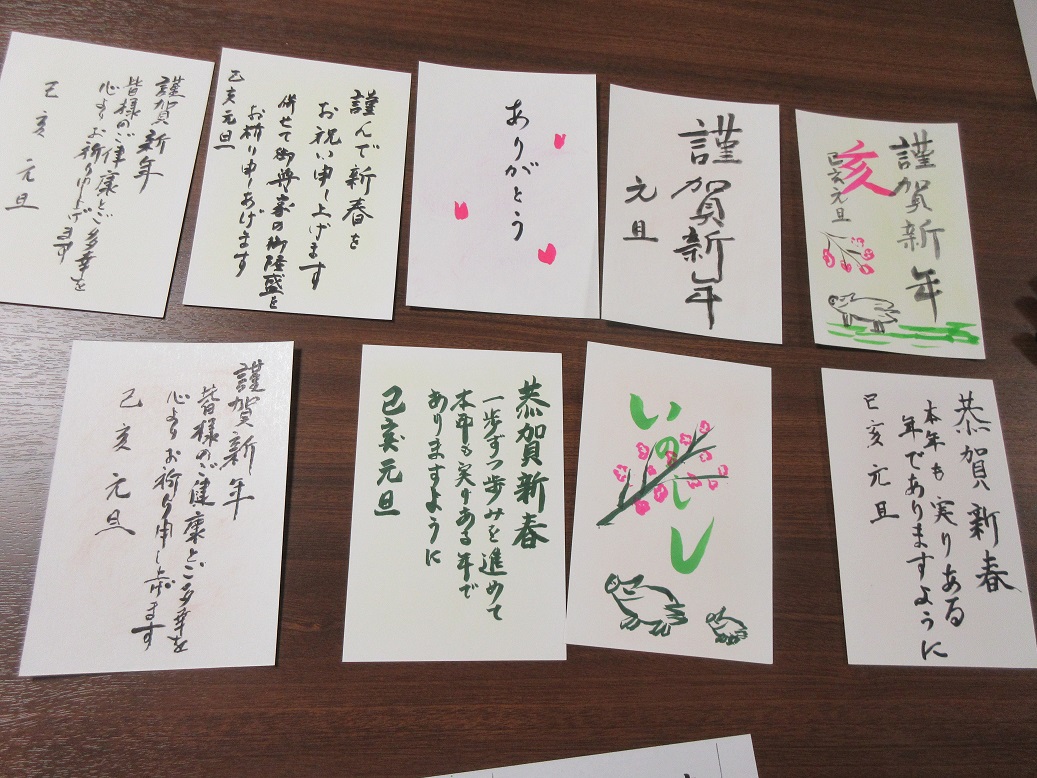 謹賀新年
皆様のご健康とご多幸を
心よりお祈り申し上げます
己亥 元旦
謹んで新春を
お祝い申し上げます
併せて御尊家の御隆盛を
お祈り申しあげます
己亥元旦
ありがとう
謹賀新年
元旦
謹賀新年
亥
己亥元旦
謹賀新年
皆様のご健康とご多幸を
心よりお祈り申し上げます
己亥 元旦
恭賀新春
一歩ずつ歩みを進めて
本年も実りある年で
ありますように
己亥元旦
いのしし
恭賀新春
本年も実りある
年でありますように
己亥 元旦